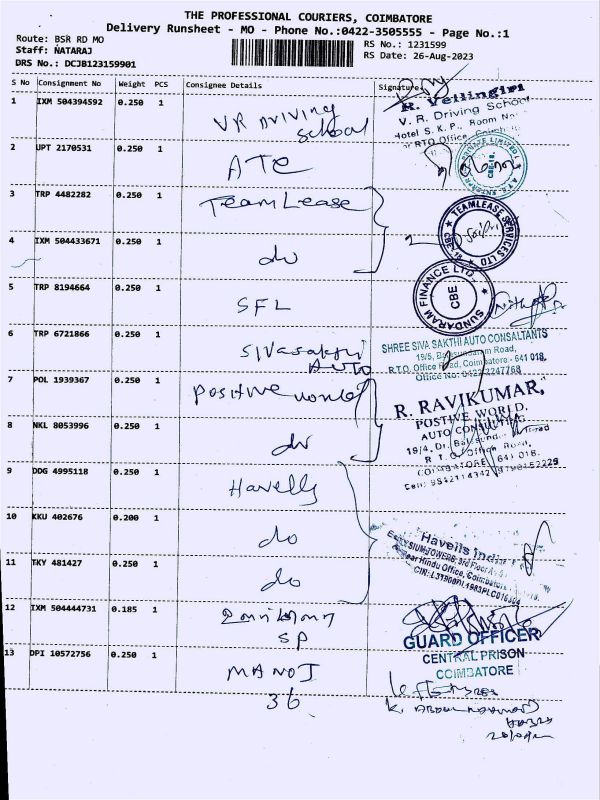 THE PROFESSIONAL COURIERS, COIMBATORE
Delivery Runsheet - MO - Phone No.:0422-3505555 - Page No.:1
Route: BSR RD MO
Staff: NATARAJ
DRS No.: DCJB123159901
RS No.: 1231599
RS Date: 26-Aug-2023
S No Consignment No Weight PCS Consignee Details Signature
1 IXM 504394592 0.250 1 VR Driving School
R. Vellingiri
V. R. Driving School
Hotel S. K. P., Room No
RTO Office
2 UPT 2170531 0.250 1 ATE
3 TRP 4482282 0.250 1 TeamLease
TEAMLEASE SERVICES LTD
4 IXM 504433671 0.250 1 do
5 TRP 8194664 0.250 1 SFL
SUNDARAM FINANCE LTD.,
CBE
6 TRP 6721866 0.250 1 Sivasakthi Auto
SHREE SIVA SAKTHI AUTO CONSALTANTS
19/5, Balasundaram Road,
R.T.O. Office Road, Coimbatore - 641 018.
Office No: 0422 2247768
7 POL 1939367 0.250 1 Positive world
R. RAVIKUMAR,
POSTIVE WORLD.
AUTO CONSULTING
19/4, Dr. Road
R. T. O. Office Road,
COIMBATORE 641 018.
8 NKL 8053996 0.250 1 do
9 DDG 4995118 0.250 1 Havells
10 KKU 402676 0.200 1 do
Havells India
TOWERS, 3rd Floor
Near Hindu Office, Coimbatore
11 TKY 481427 0.250 1 do
12 IXM 504444731 0.185 1 SP
GUARD OFFICER
CENTRAL PRISON
COIMBATORE
13 DPI 10572756 0.250 1 MANOJ
36